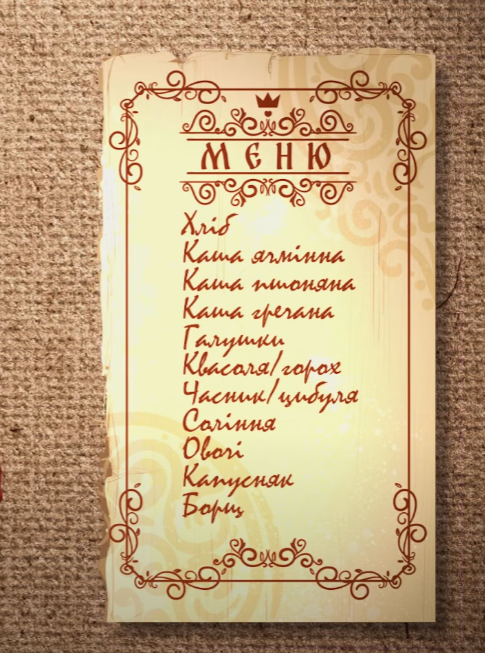 МЕНЮ
Хліб
Каша ячмінна
Каша пшоняна
Каша гречана
Галушки
Квасоля/горох
Часник/цибуля
Соління
Овочі
Капусняк
Борщ